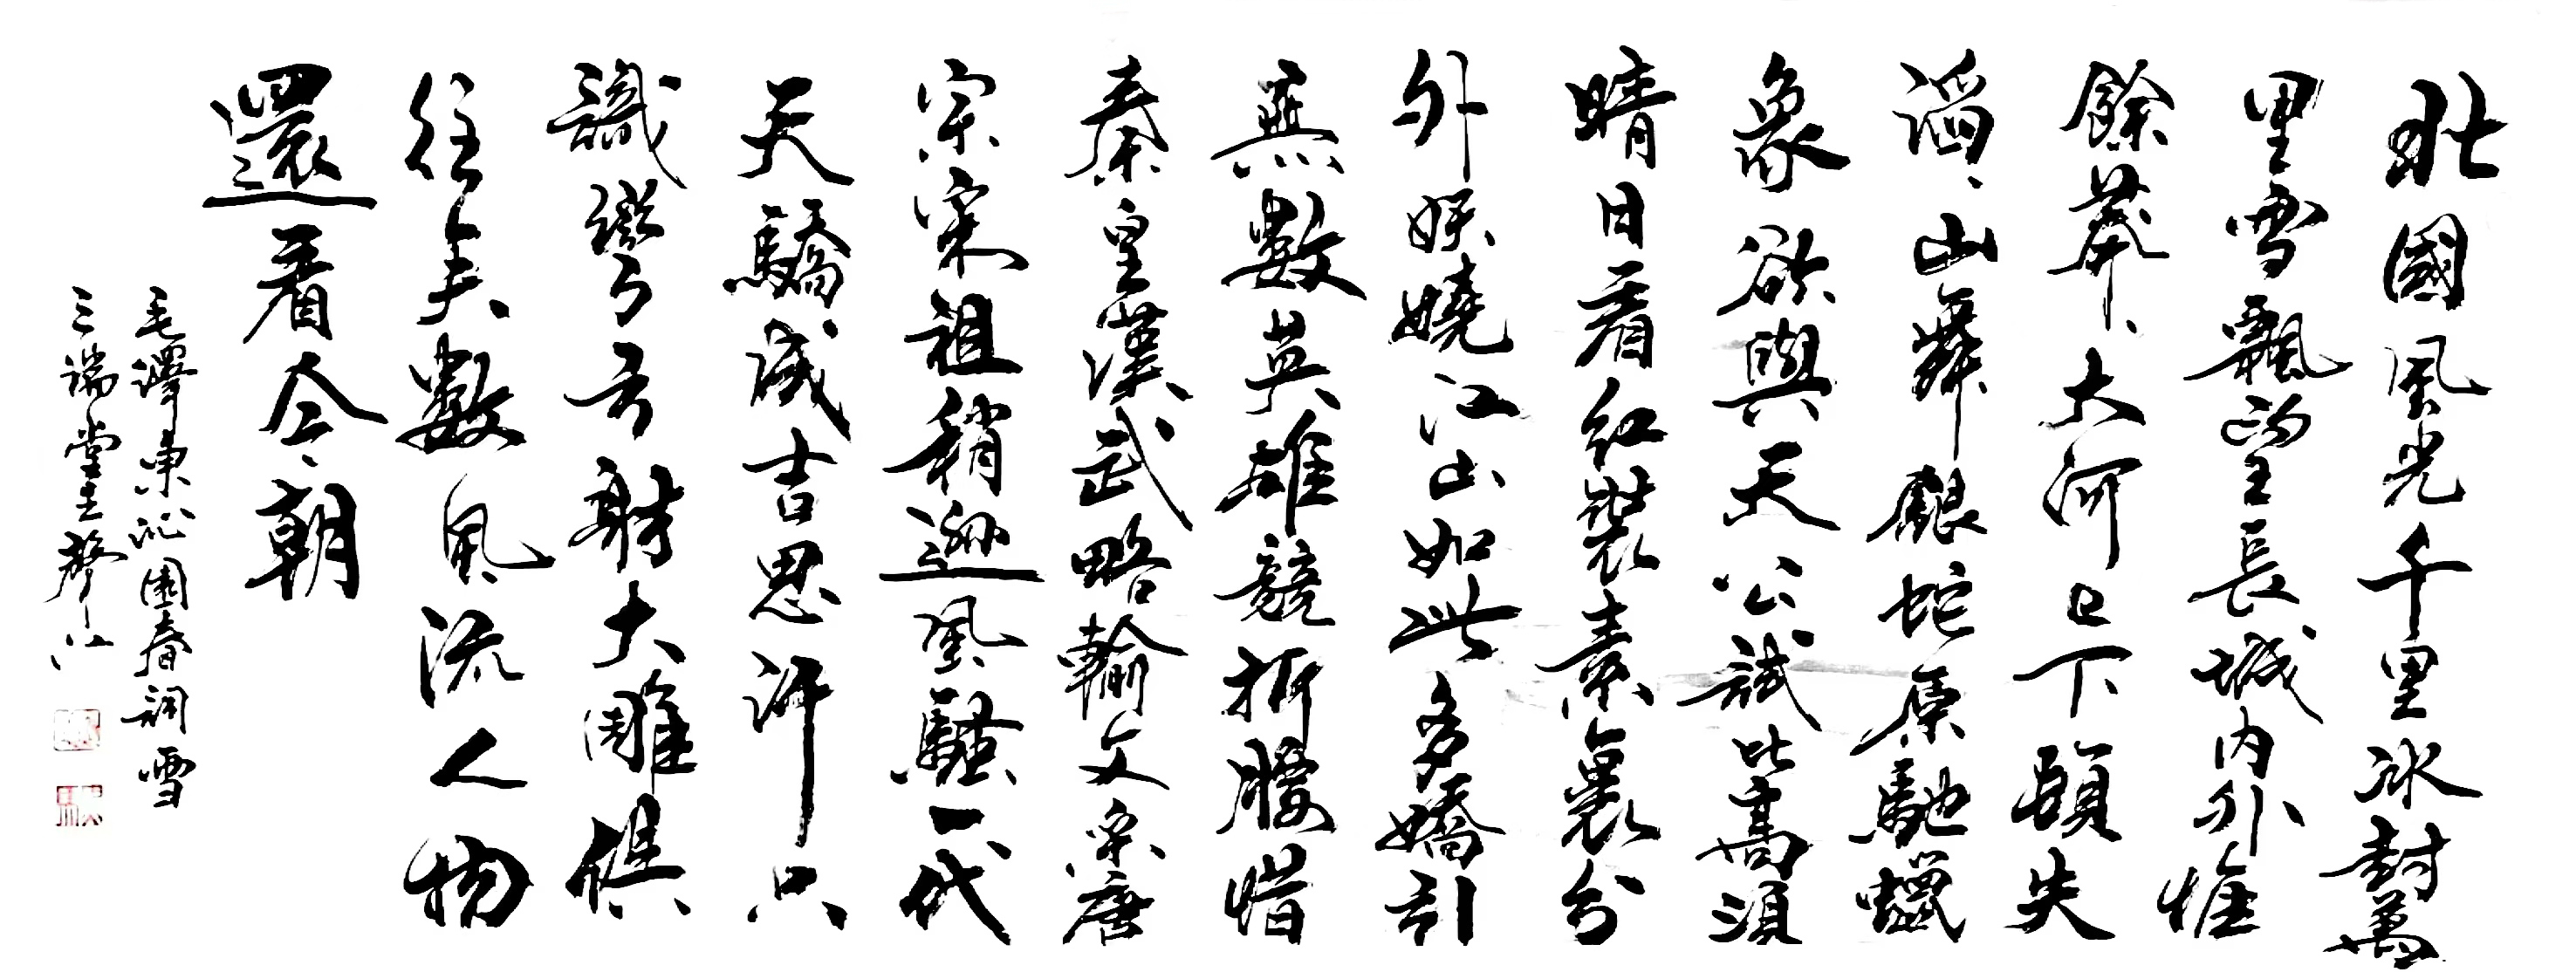 北國風光千里冰封萬
里雪飄望長城内外惟
餘莽〻大河已下頓失
滔〻山舞銀蛇原馳蠟
象欲與天公試比高須
晴日看紅裝素裹分
外妖嬈江山如此多嬌引
無數英雄競折腰惜
秦皇漢武略輸文采唐
宗宋祖稍遜風騷一代
天驕成吉思汗只
識彎弓射大雕俱
往矣數風流人物
還看今朝
毛澤東沁園春詞雪
三端堂主聲江